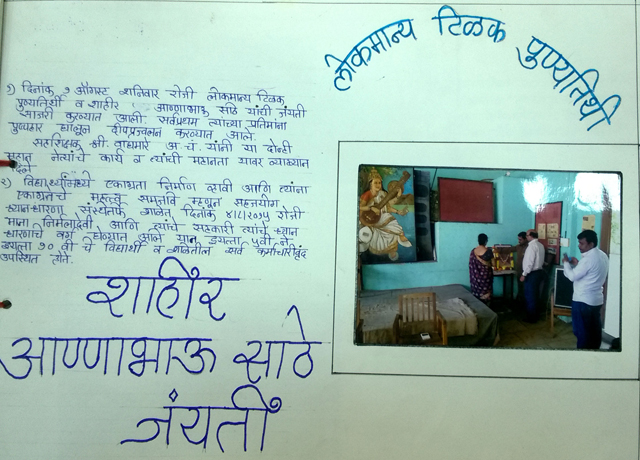 लोकमान्य टिळक पुण्यतिथी
१) दिनांक १ ऑगस्ट शनिवार रोजी लोकमान्य टिळक
पुण्यतिथी व शाहीर आण्णाभाऊ साठे यांची जंयती
साजरी करण्यात आली सर्वप्रथम त्यांच्या प्रतिमांना
पुष्पहार घालून दीपप्रज्वलन करण्यात आले.
सहशिक्षक श्री. वाघमारे अ. चं. यांनी या दोन्ही
महान नेत्यांचे कार्य व त्यांची महानता यावर व्याख्यान
दिले
२) विद्यार्थ्यांमध्ये एकाग्रता निर्माण व्हावी आणि त्यांना
एकाग्रतेचे महत्त्व समजावे म्हणून सहजयोग
ध्यान-धारणा संस्थेतर्फे दिनांक ४/८/२०१५ रोजी
माता निर्मलादेवी आणि त्यांचे सहकारी त्यांचे ध्यान
धारणाचे वर्ग घेण्यात आले यात इयत्ता ५वी ते
इयत्ता १० वी चे विद्यार्थी व शाळेतील सर्व कर्मचारीवृंद
उपस्थित होते.
शाहीर
आण्णाभाऊ साठे
जंयती